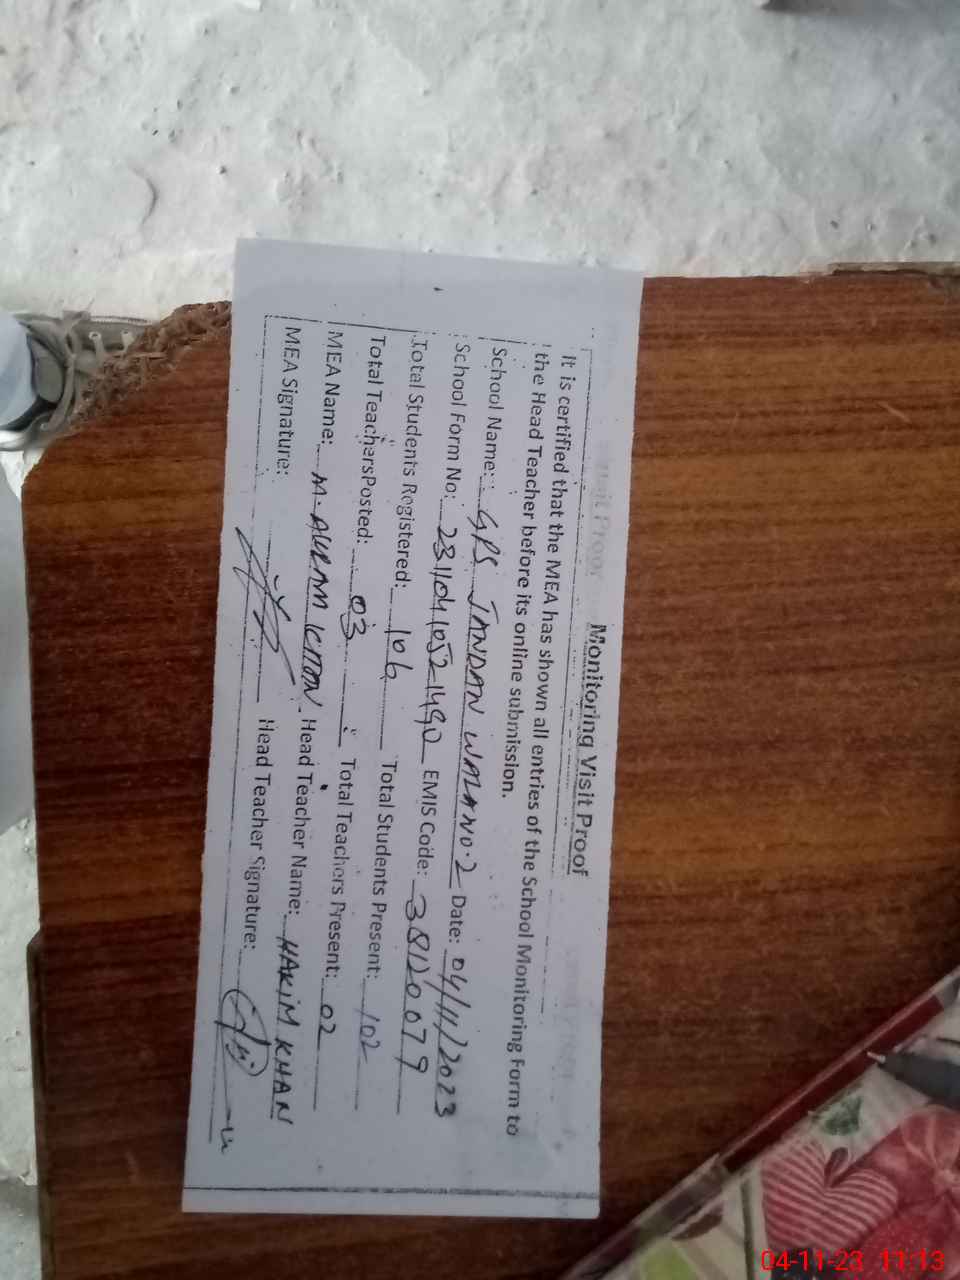 Monitoring Visit Proof
It is certified that the MEA has shown all entries of the School Monitoring Form to
the Head Teacher before its online submission.
School Name: GPS JANDAN WALA NO.2 Date: 04/11/2023
School Form No: 23110410521490 EMIS Code: 38120079
Total Students Registered: 106 Total Students Present: 102
Total Teachers Posted: 03 Total Teachers Present: 02
MEA Name: M. AKRAM KHAN Head Teacher Name: HAKIM KHAN
MEA Signature: Head Teacher Signature:
04-11-23 11:13